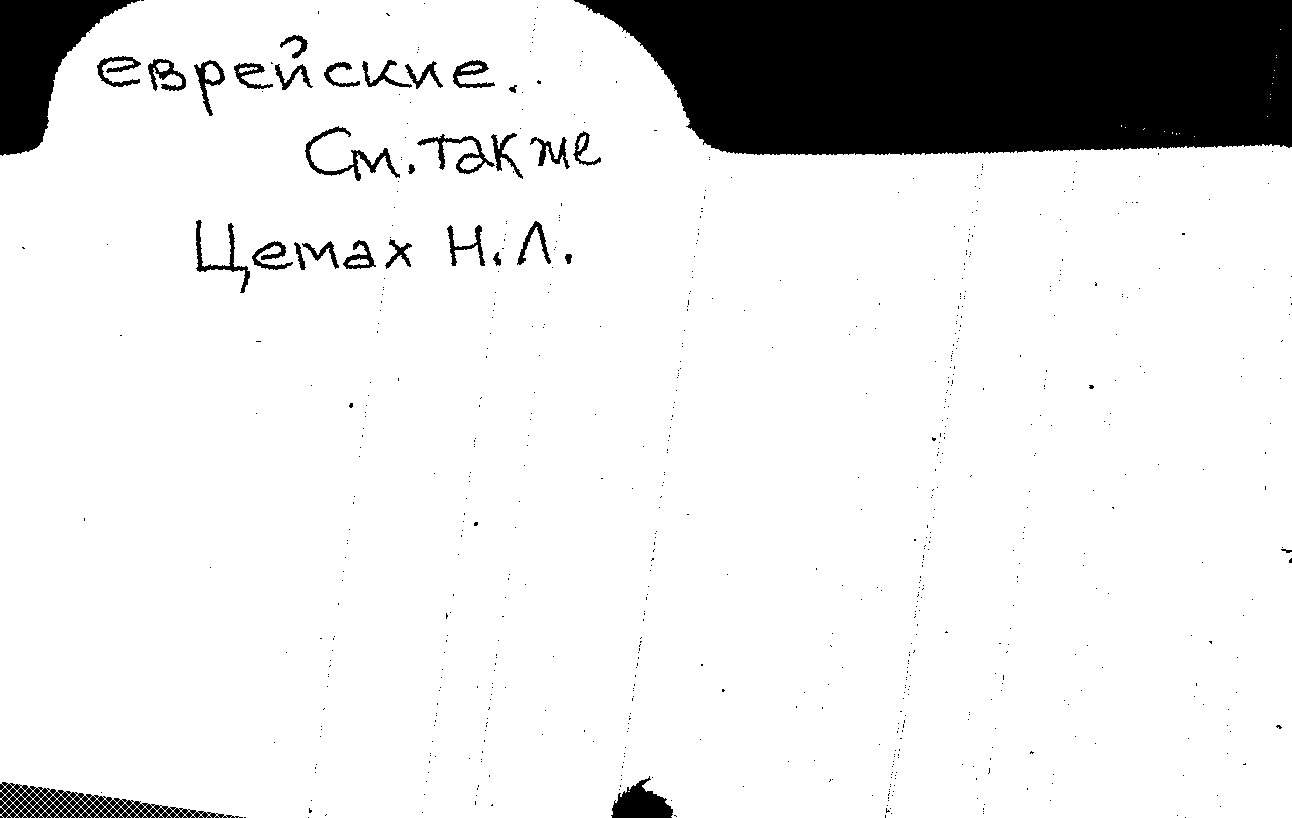 еврейские.
См. также
Цемах Н.Л.